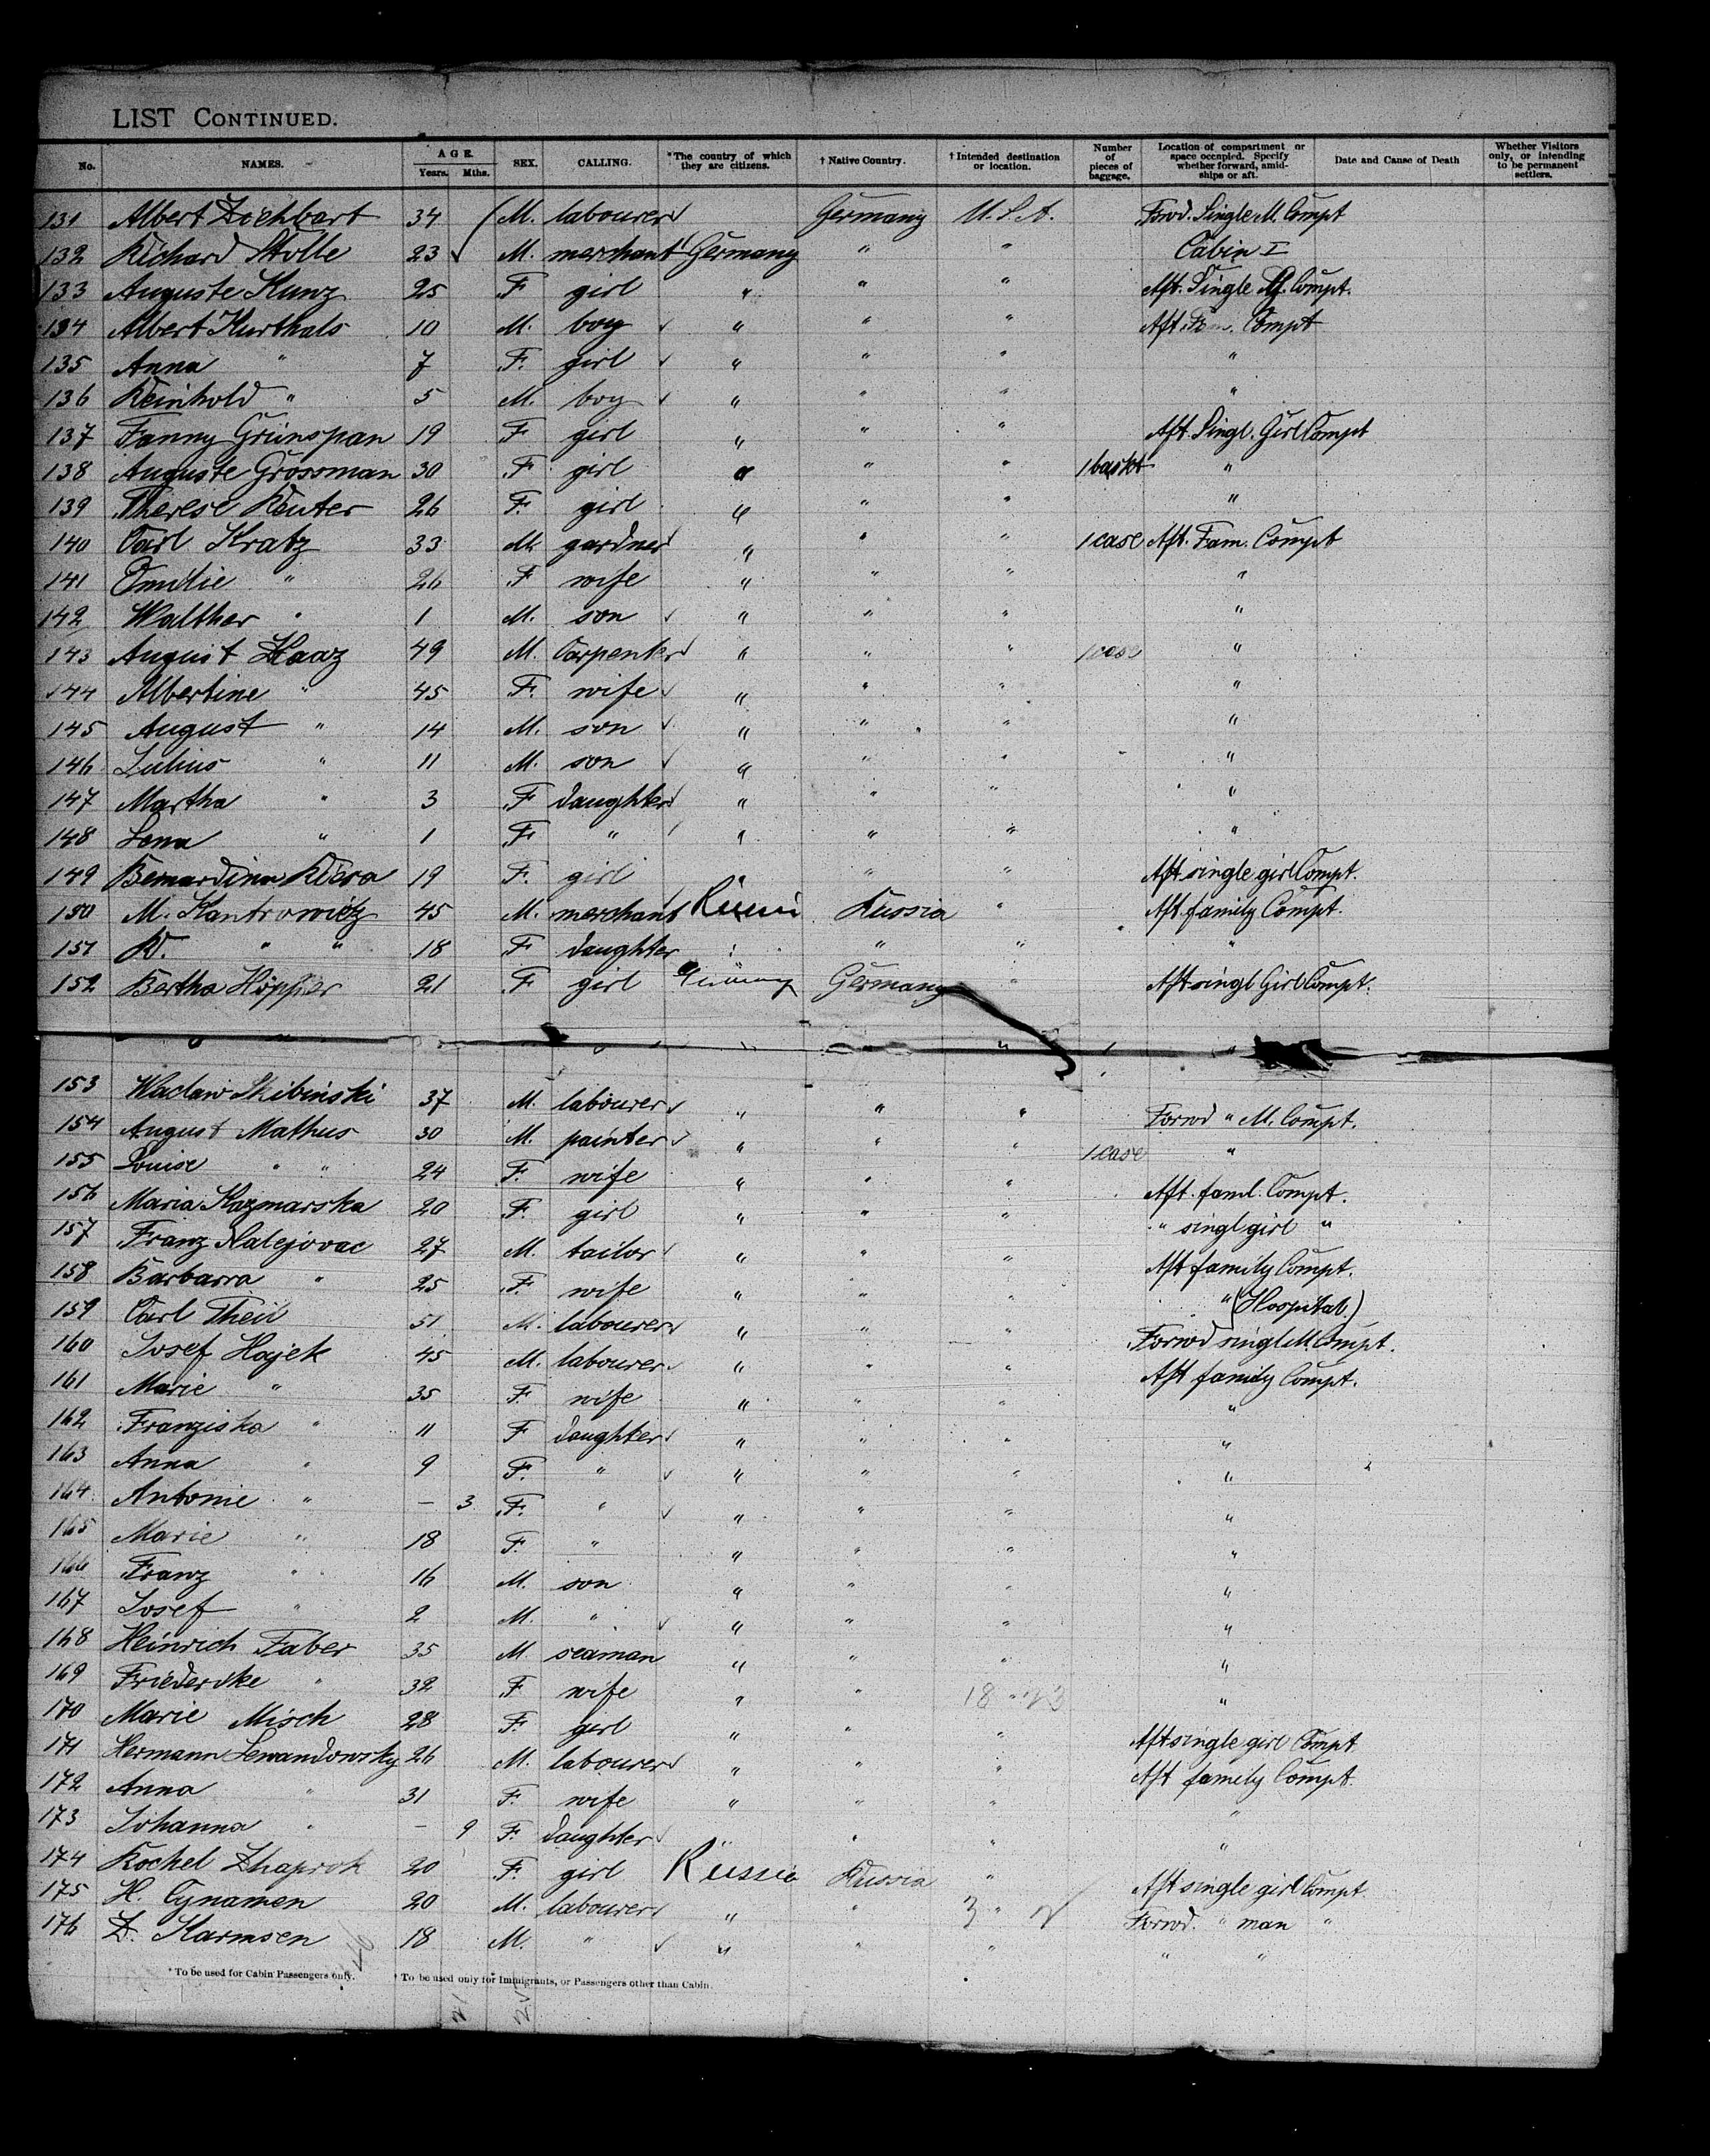 LIST CONTINUED.
No. NAMES. AGE. Years. Mths. SEX. CALLING. *The country of which they are citizens. † Native Country. † Intended destination or location. Number of pieces of baggage. Location of compartment or space occupied. Specify whether forward, amidships or aft. Date and Cause of Death Whether Visitors only, or intending to be permanent settlers.
131 Albert 34 M. labourer Germany U.S.A. Forwd. Single M. Compt
132 Richard Stolle 23 M. merchant Germany " " Cabin I
133 Auguste Kunz 25 F girl " " " Aft. Single Compt.
134 Albert Kurthals 10 M. boy " " " Aft. Fam. Compt
135 Anna " 7 F. girl " " " "
136 Reinhold " 5 M. boy " " " "
137 Fanny Grünspan 19 F girl " " " Aft. Singl. Girl Compt
138 Auguste Grossman 30 F. girl " " " 1 baskt "
139 Therese Reuter 26 F. girl " " " "
140 Carl Kratz 33 M. gardner " " " 1 case Aft. Fam. Compt
141 Emilie " 26 F wife " " " "
142 Walther " 1 M. son " " " "
143 August Haaz 49 M. Carpenter " " " 1 case "
144 Albertine " 45 F. wife " " " "
145 August " 14 M. son " " " "
146 Julius " 11 M. son " " " "
147 Martha " 3 F daughter " " " "
148 Lena " 1 F " " " " "
149 Bernardina 19 F. girl " " " Aft single girl Compt.
150 M. Kantrowicz 45 M. merchant Russia " Aft. family Compt.
151 R. " " 18 F daughter " " " "
152 Bertha Höpper 21 F girl Germany Germany " Aft singl Girl Compt.
153 Waclaw Skibinski 37 M. labourer " " " Forwd " M. Compt.
154 August Mathus 30 M. painter " " " 1 case "
155 Louise " " 24 F. wife " " " Aft. faml. Compt.
156 Maria Kazmarska 20 F. girl " " " " singl girl "
157 Franz Nalejovac 27 M. tailor " " " Aft family Compt.
158 Barbarra " 25 F. wife " " " " (Hospital)
159 Carl Theil 51 M. labourer " " " Forwd singl M. Compt.
160 Josef Hajek 45 M. labourer " " " Aft family Compt.
161 Marie " 35 F. wife " " " "
162 Franziska " 11 F daughter " " " "
163 Anna " 9 F. " " " " "
164 Antonie " — 3 F. " " " " "
165 Marie " 18 F. " " " " "
166 Franz " 16 M. son " " " "
167 Josef " 2 M. " " " " "
168 Heinrich Faber 35 M seaman " " " "
169 Friederike " 32 F wife " " "
170 Marie Misch 28 F. girl " " " Aft single girl Compt
171 Hermann Lewandowsky 26 M. labourer " " " Aft family Compt.
172 Anna " 31 F. wife " " " "
173 Johanna " — 9 F. daughter " " " "
174 Rochel 20 F. girl Russia Russia " Aft single girl Compt
175 H. Cynamen 20 M. labourer " " " Forwd. " man "
176 Z. Karmsen 18 M. " " " " " "
* To be used for Cabin Passengers only. † To be used only for Immigrants, or Passengers other than Cabin.